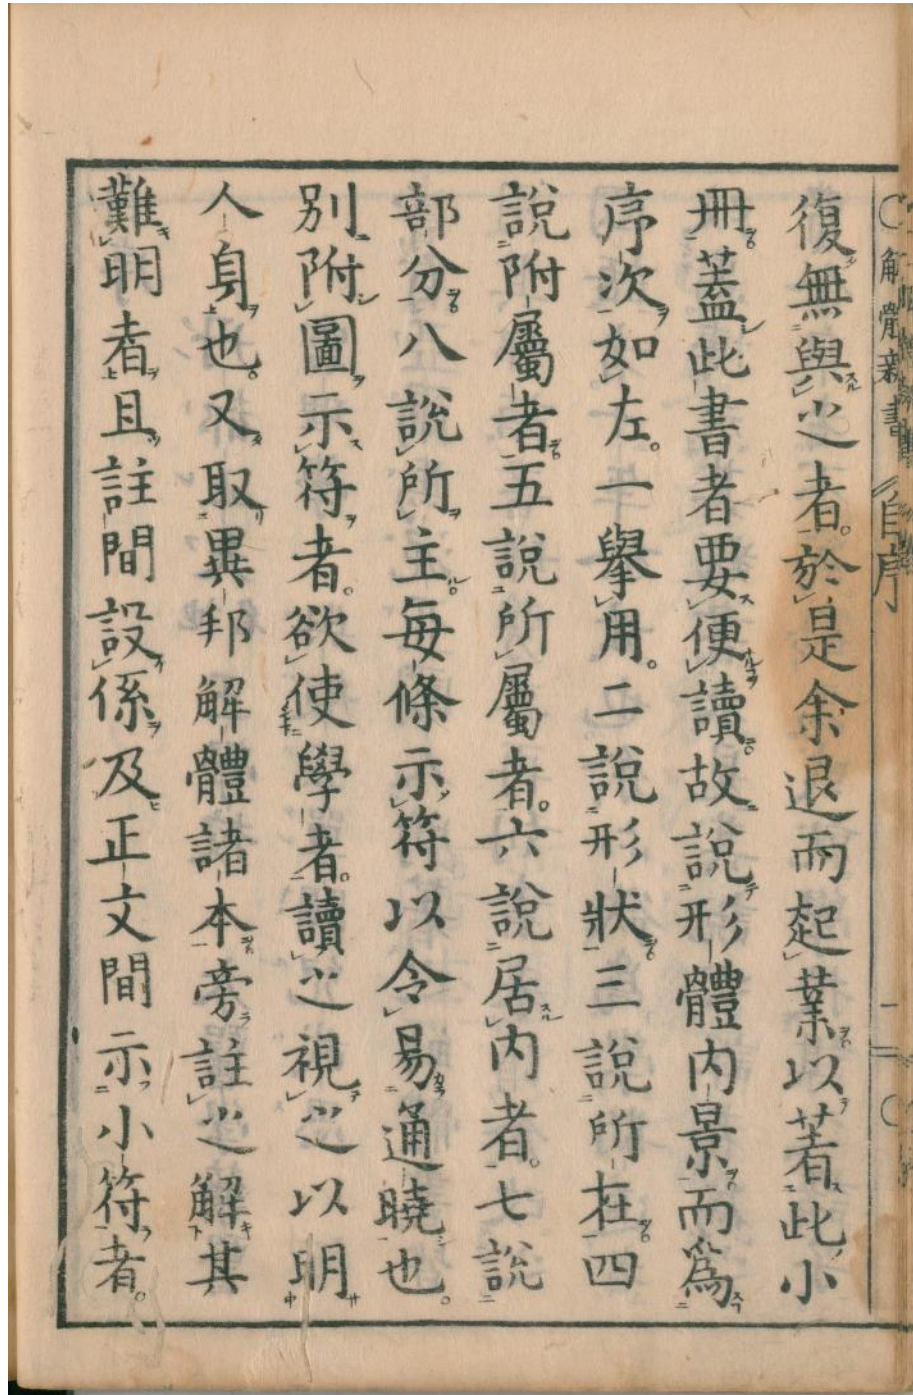 解體新書　自序
復無與之者。於是余退而起業以著此小
冊。蓋此書者要便讀。故說形體内景。而爲
序次如左。一擧用。二說形狀。三說所在。四
說附屬者。五說所屬者。六說居内者。七說
部分。八說所主。每條示符以令易通曉也。
別附圖示符者。欲使學者。讀之視之以明
人身也。又取異邦解體諸本。旁註之解其
難明者。且註間設係及正文間示小符者。